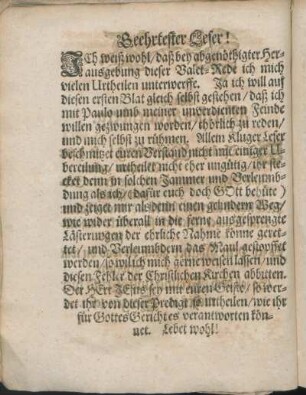 Geehrtester Leser!
ICh weiß wohl / daß bey abgenöthigter Her-
ausgebung dieser Valet-Rede ich mich
vielen Urtheilen unterwerffe. Ja ich will auf
diesen ersten Blat gleich selbst gestehen / daß ich
mit Paulo umb meiner unverdienten Feinde
willen gezwungen worden / thörlich zu reden /
und mich selbst zu rühmen. Allein Kluger Leser
beschmitzet euren Verstand nicht mit einiger U-
bereilung / urtheilet nicht eher ungütig / ihr ste-
cket denn in solchen Jammer und Verleumb-
dung als ich / (dafür euch doch GOtt behüte)
und zeiget mir alsdenn einen gelindern Weg /
wie wider überall in die ferne ausgesprengte
Lästerungen der ehrliche Nahme könne geret-
tet / und Verleumbdern das Maul gestopffet
werden / so will ich mich gerne weisen lassen / und
diesen Fehler der Christlichen Kirchen abbitten.
Der HErr JEsus sey mit euren Geiste / so wer-
det ihr von dieser Predigt so urtheilen / wie ihr
für Gottes Gericht es verantworten kön-
net. Lebet wohl!